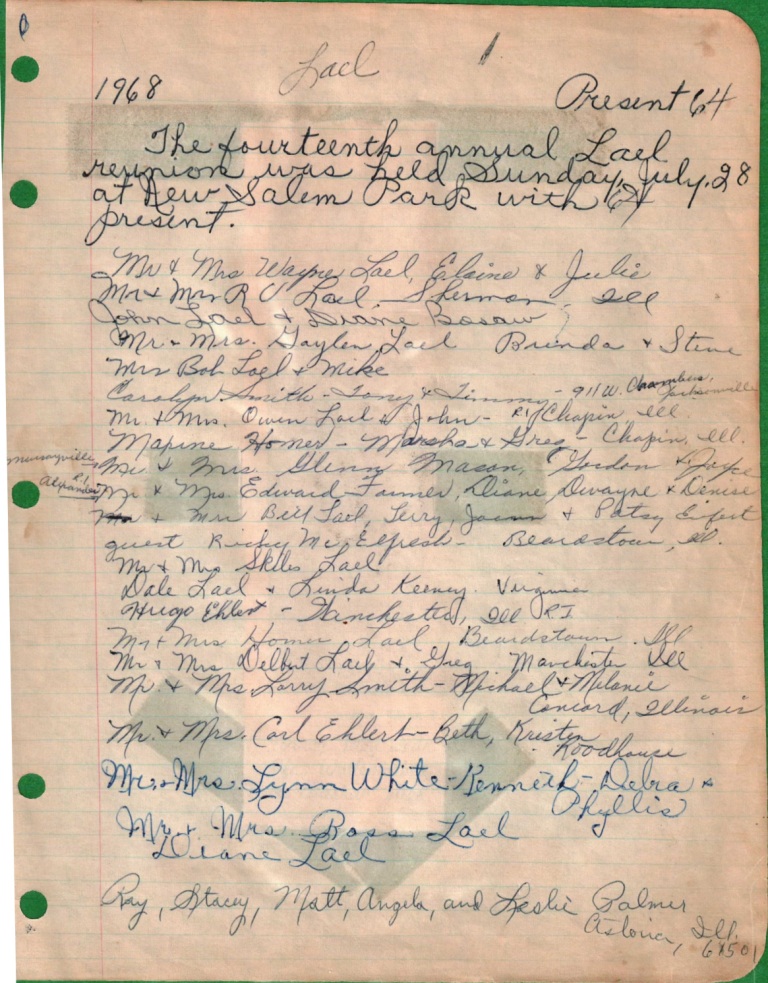 Lael
1968 Present 64
The fourteenth annual Lael
reunion was held Sunday, July. 28
at New Salem Park with 64
present.
Mr & Mrs Wayne Lael, Elaine & Julie
Mr & Mrs R O Lael. Sherman, Ill
John Lael & Diane
Mr. & Mrs. Gaylen Lael Brenda & Steve
Mrs Bob Lael & Mike
Carolyn Smith - Tony & Timmy - 911 W. Chambers, Jacksonville
Mr. & Mrs. Owen Lael & John - R1, Chapin Ill.
Maxine Homer - Marsha & Greg - Chapin, Ill.
Murrayville, Mr & Mrs. Glenn Mason, Gordon & Joyce
R.1 Alexander Mr & Mrs. Edward Farmer, Diane Dwayne & Denise
Mr & Mrs Bill Lael, Terry, & Patsy
guest Ricky Mc - Beardstown, Ill.
Mr & Mrs Skiles Lael
Dale Lael & Linda Keeney. Virginia
Hugo Ehlert - Winchester, Ill R I
Mr & Mrs Homer Lael Beardstown. Ill
Mr & Mrs Delbert Lael & Greg Manchester Ill
Mr. & Mrs Larry Smith - Michael & Melanie
Concord, Illinois
Mr. & Mrs. Carl Ehlert - Beth, Kristen
Roodhouse
Mr. & Mrs. Lynn White - Kenneth - Debra &
Phyllis
Mr & Mrs. Ross Lael
Diane Lael
Ray, Stacey, Matt, Angela, and Leslie Palmer
Astoria, Ill.
61501